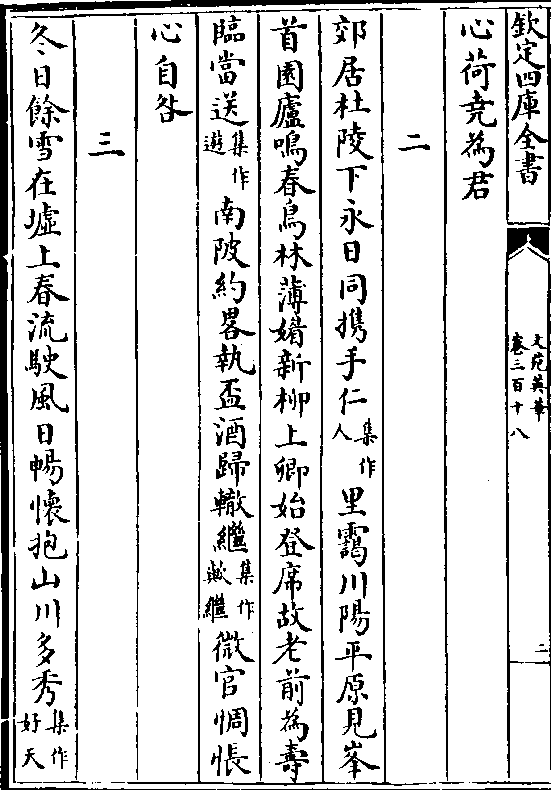 欽定四庫全書
文苑英華
卷三百十八
二
心荷堯為君
二
郊居杜陵下永日同攜手仁集作人里靄川陽平原見峯
首園廬鳴春鳥林薄媚新柳上卿始登席故老前為壽
臨當送集作遊南陂約畧執盃酒歸轍繼集作歟繼微官惆悵
心自咎
三
冬日餘雪在墟上春流駛風日暢懷抱山川多秀集作好天